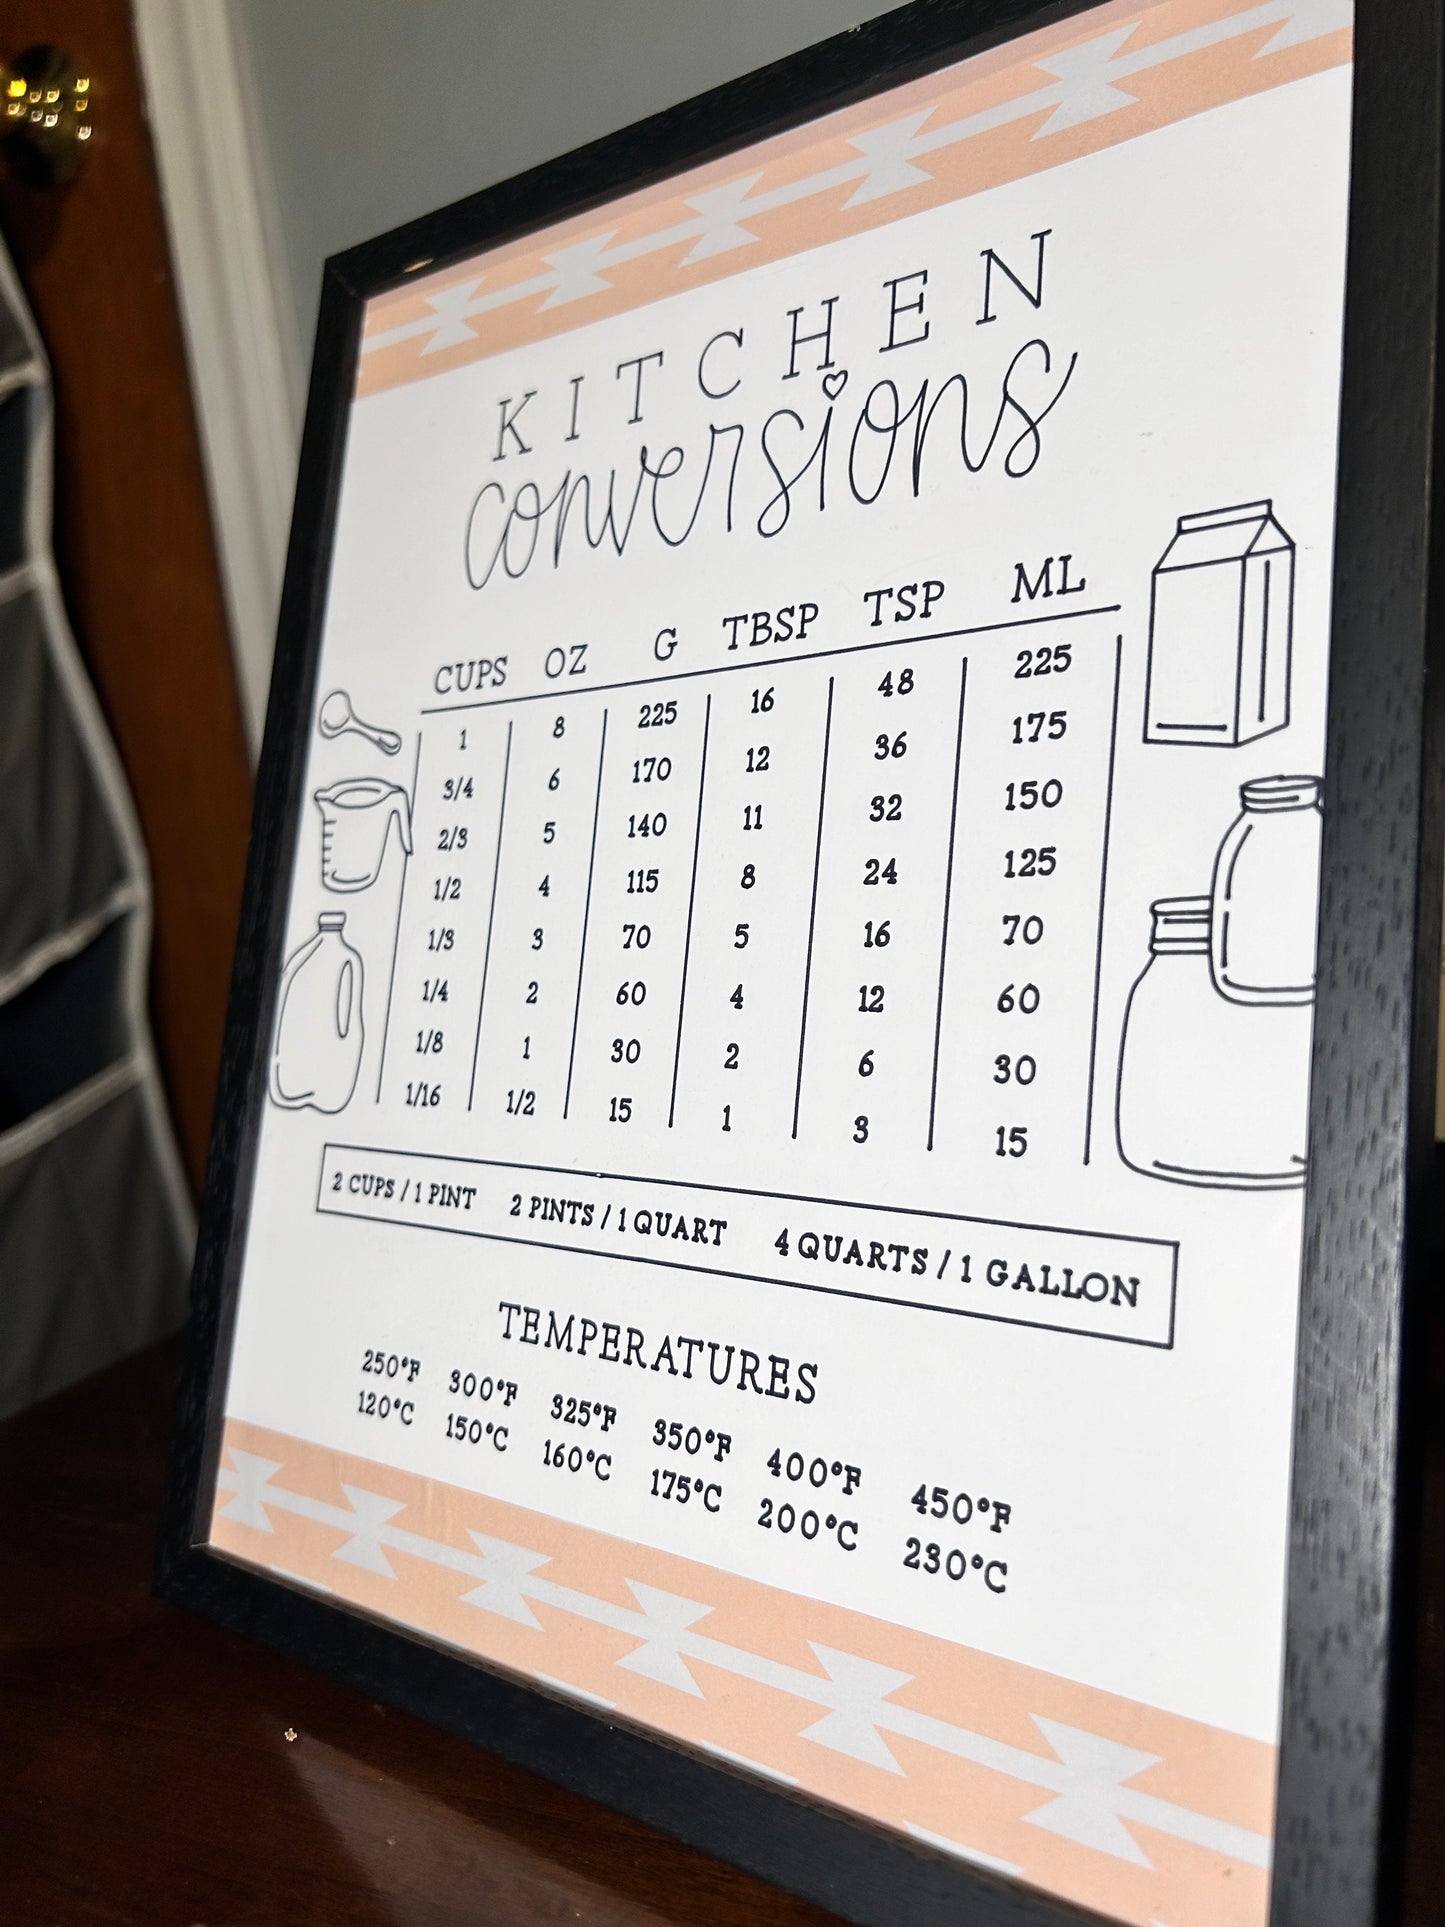 KITCHEN
conversions
CUPS OZ G TBSP TSP ML
1 8 225 16 48 225
3/4 6 170 12 36 175
2/3 5 140 11 32 150
1/2 4 115 8 24 125
1/3 3 70 5 16 70
1/4 2 60 4 12 60
1/8 1 30 2 6 30
1/16 1/2 15 1 3 15
2 CUPS / 1 PINT 2 PINTS / 1 QUART 4 QUARTS / 1 GALLON
TEMPERATURES
250°F 300°F 325°F 350°F 400°F 450°F
120°C 150°C 160°C 175°C 200°C 230°C